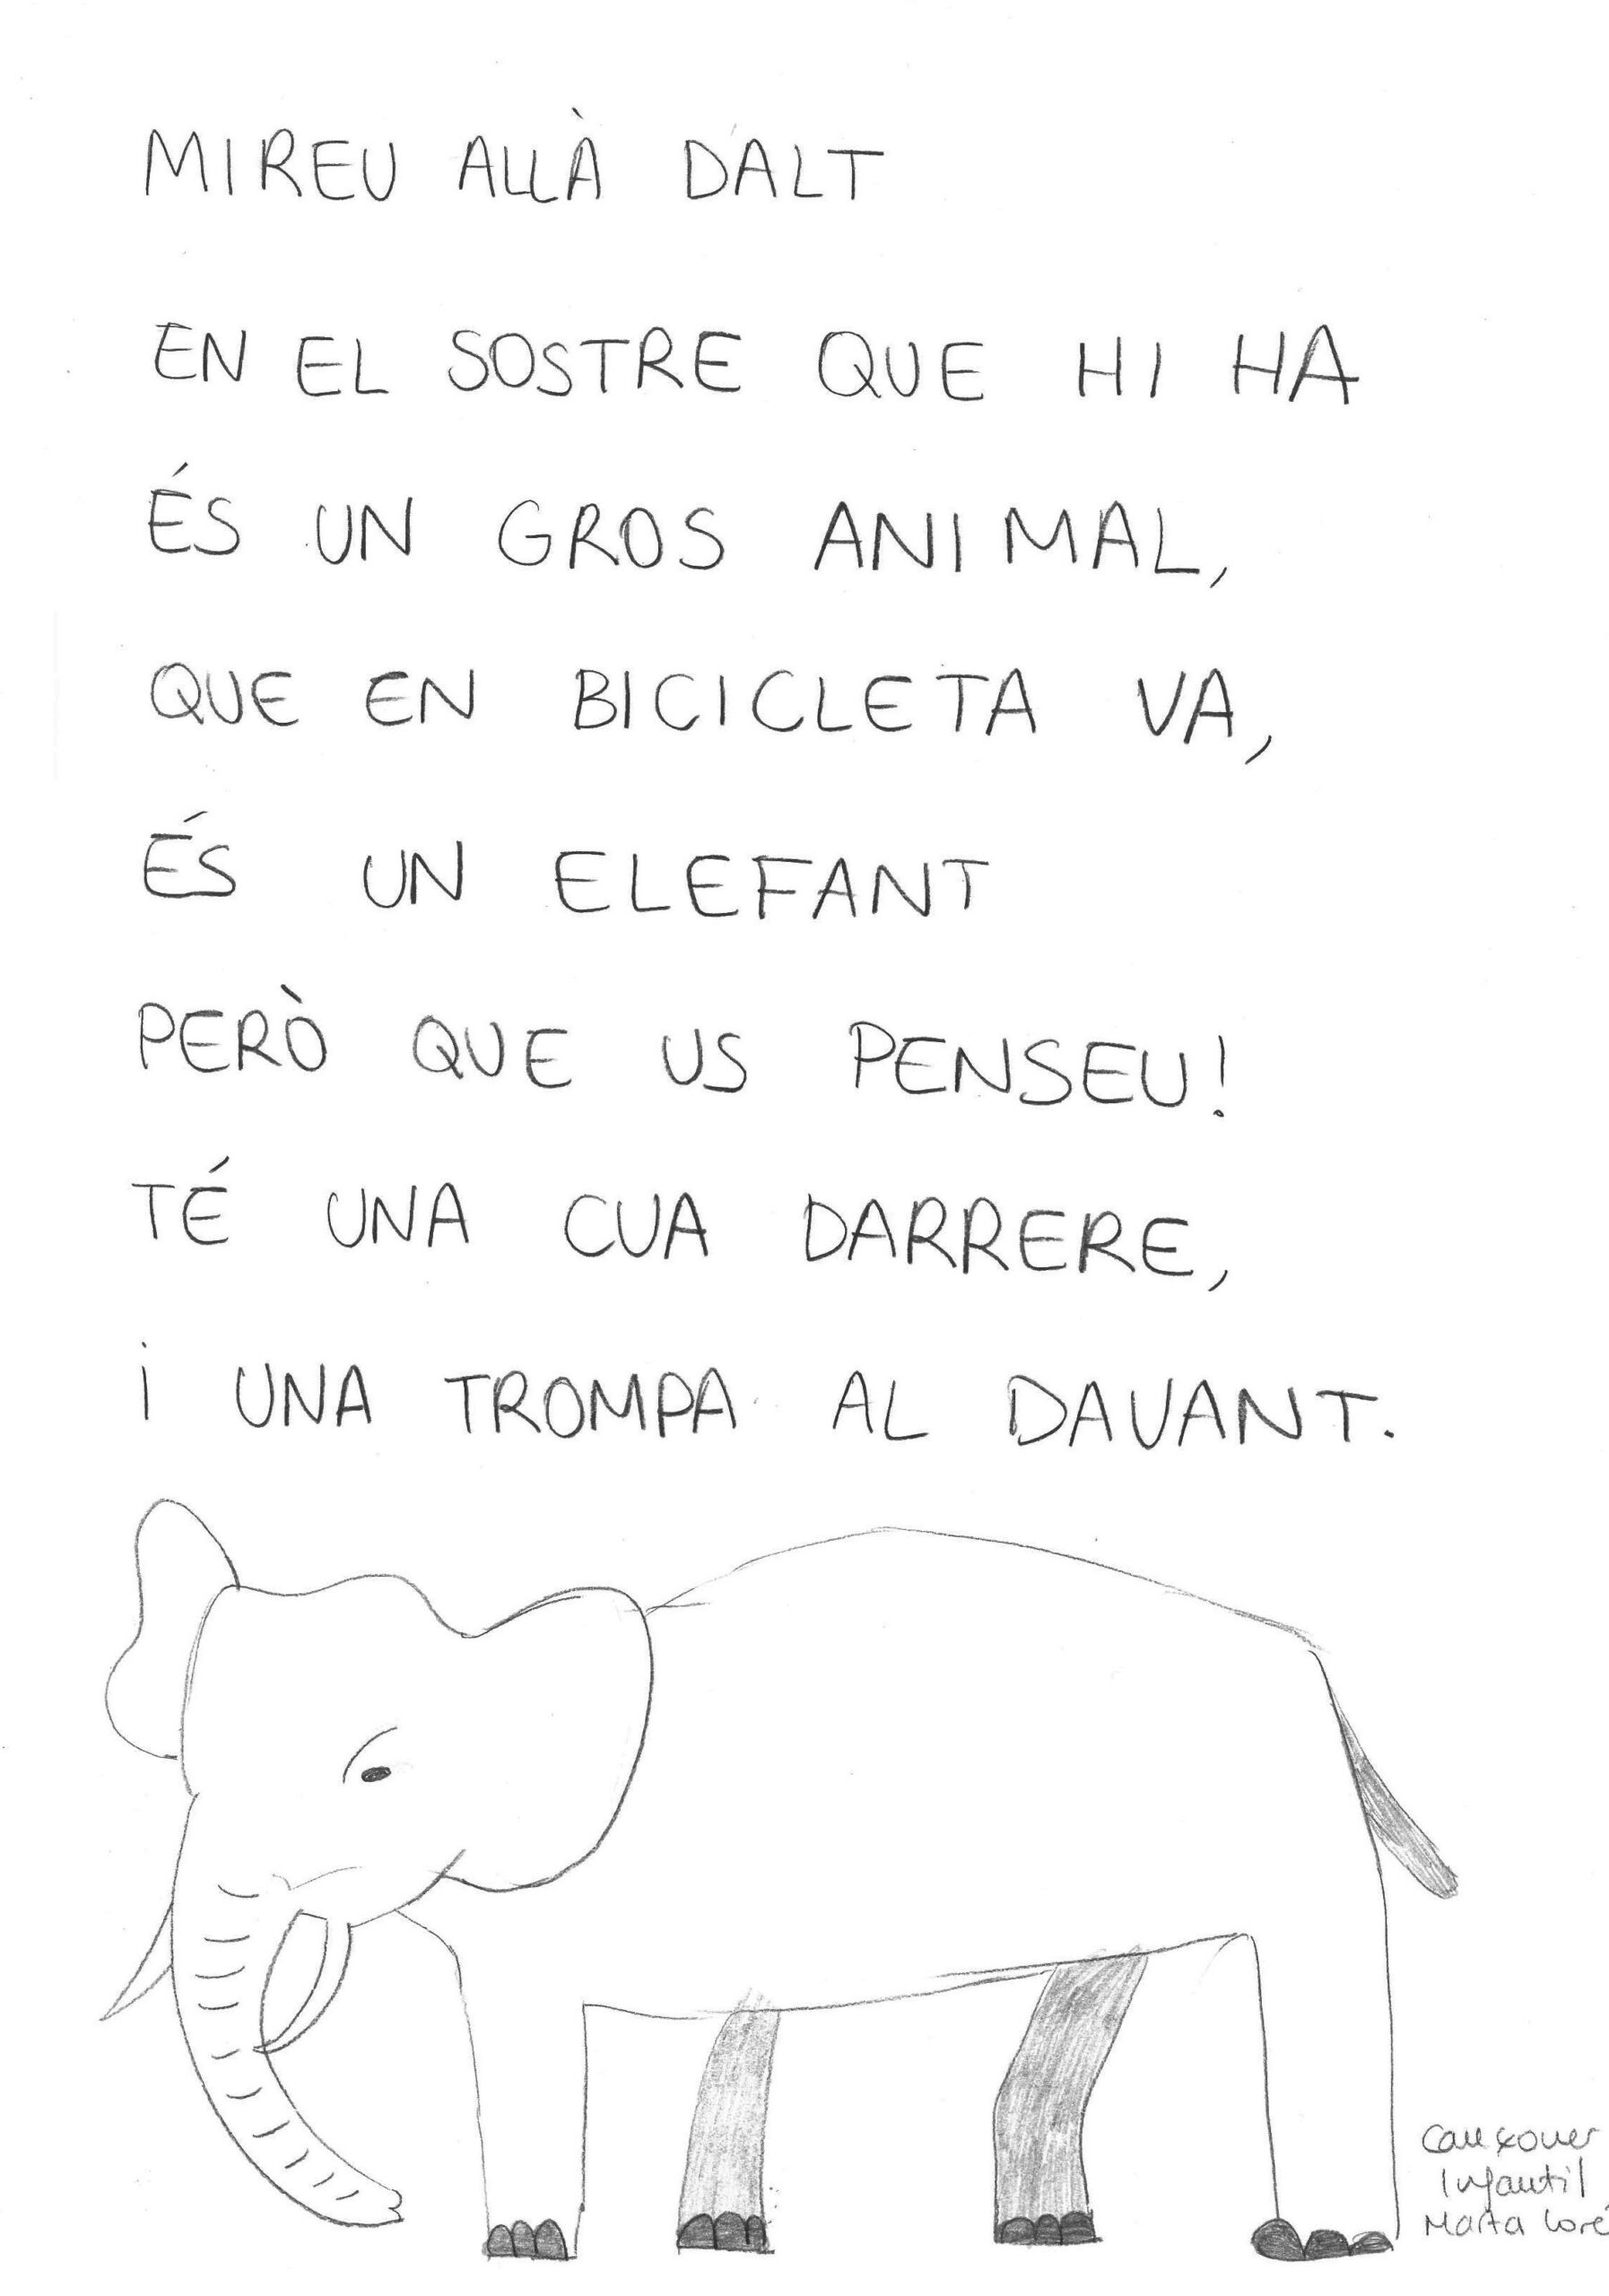 MIREU ALLÀ DALT
EN EL SOSTRE QUE HI HA
ÉS UN GROS ANIMAL,
QUE EN BICICLETA VA,
ÉS UN ELEFANT
PERÒ QUE US PENSEU!
TÉ UNA CUA DARRERE,
I UNA TROMPA AL DAVANT.
Cançoner
Infantil
Marta